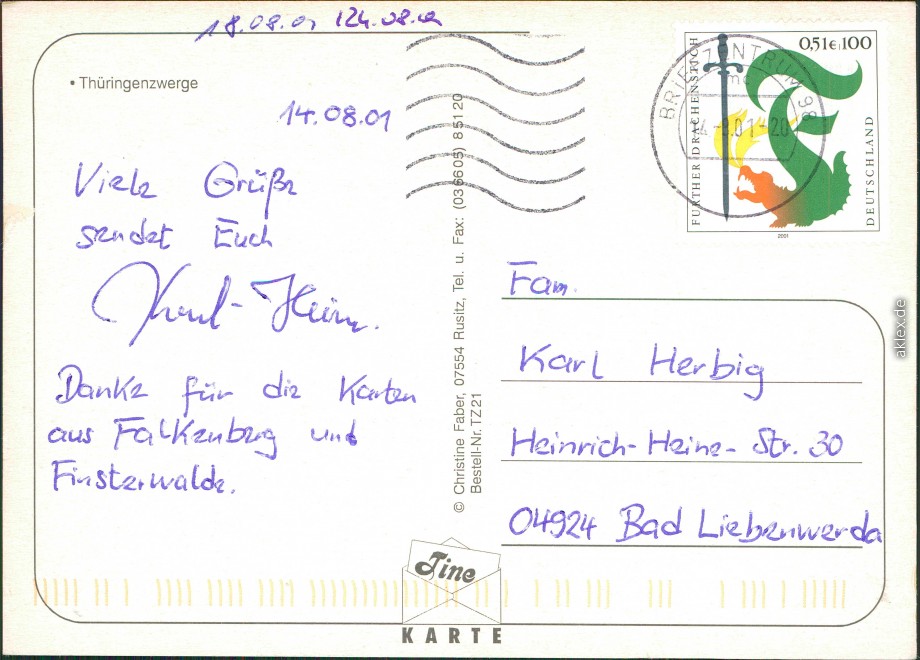 18.08.01 /24.08.01
• Thüringenzwerge
14.08.01
Viele Grüße
sendet Euch
Karl-Heinz.
Danke für die Karten
aus Falkenberg und
Finsterwalde.
© Christine Faber, 07554 Rusitz, Tel. u. Fax: (036605) 85120
Bestell-Nr. TZ21
BRIEFZENTRUM 98
FURTHER DRACHENSTICH
0,51€ 100
DEUTSCHLAND
2001
Fam.
Karl Herbig
Heinrich-Heine-Str. 30
04924 Bad Liebenwerda
Tine
KARTE
aklex.de